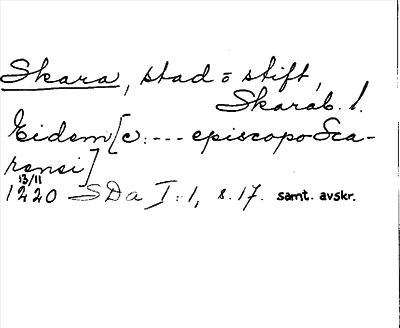 Skara, stad o stift,
Skarab. l.
Eidem [c: --- episcopo Sca-
rensi]
13/11
1220 SDa I:1, s. 17. samt. avskr.